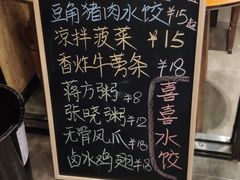 豆角猪肉水饺 ¥15
凉拌菠菜 ¥15
香炸牛蒡条 ¥18
蒋方粥 ¥8
张晓粥 ¥12
无骨凤爪 ¥18
卤水鸡翅 ¥18
喜喜水饺